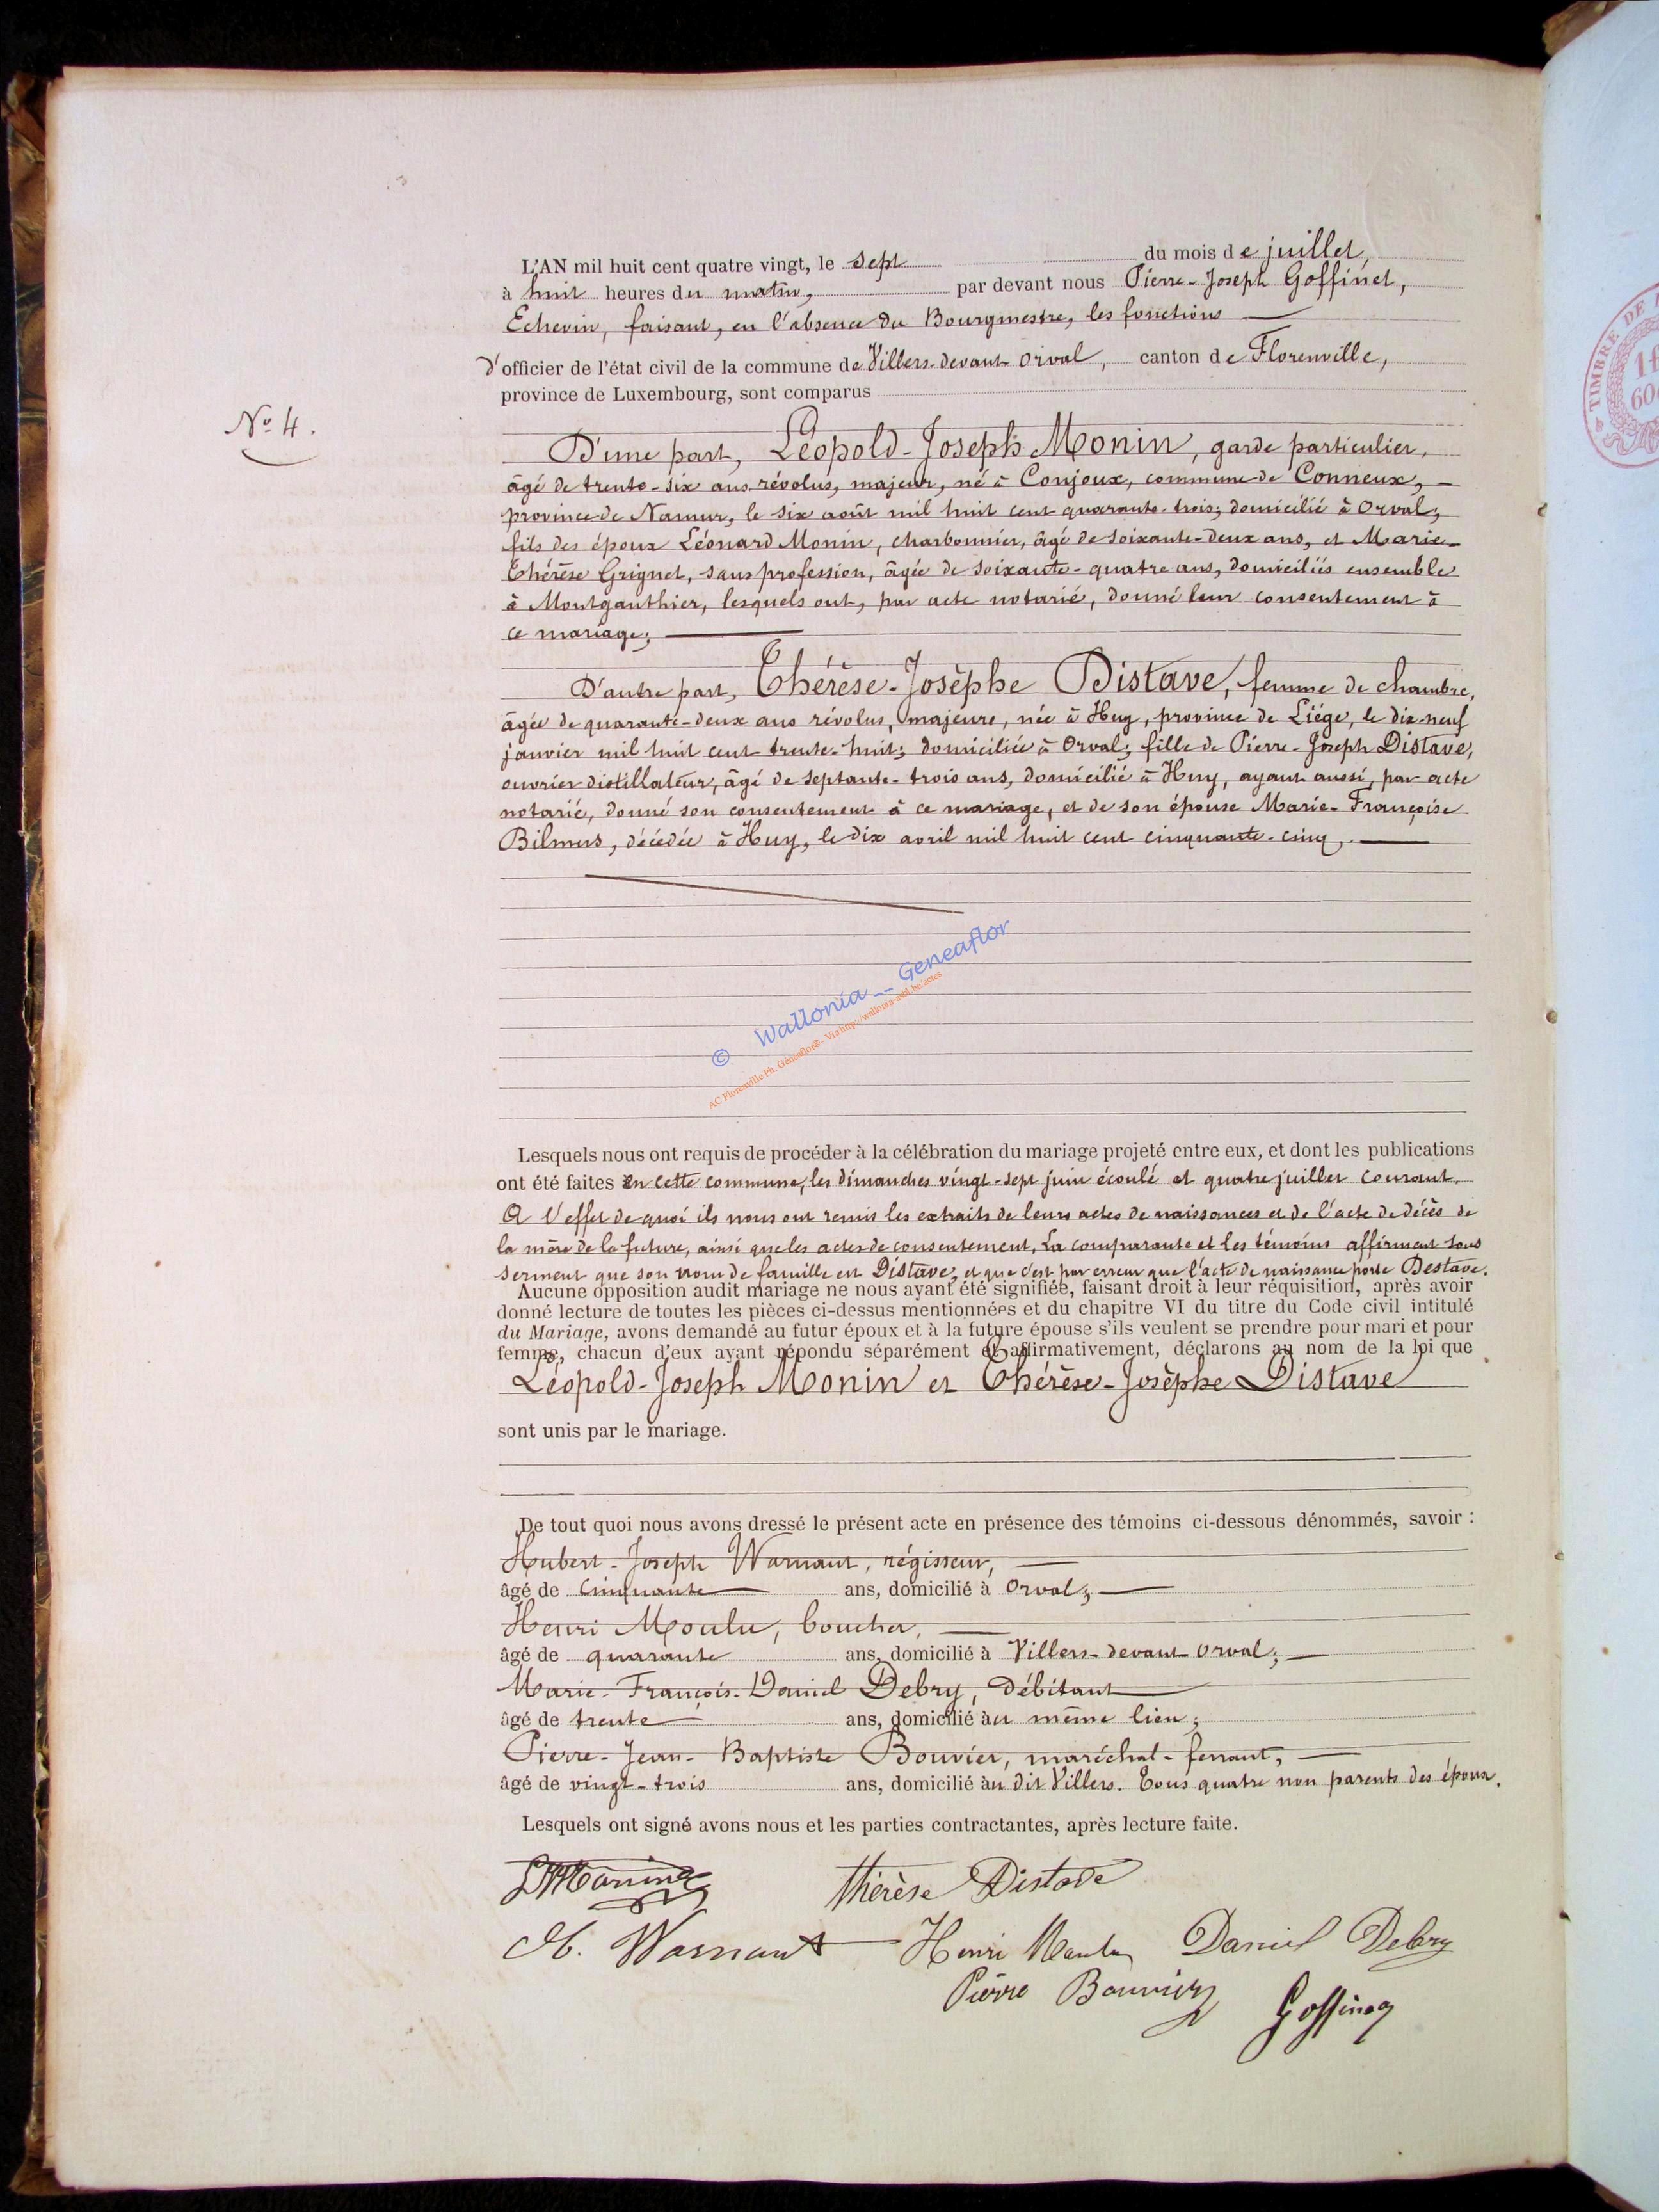 L'AN mil huit cent quatre vingt, le sept du mois de juillet,
à huit heures du matin, par devant nous Pierre-Joseph Goffinet,
Echevin, faisant, en l'absence du Bourgmestre, les fonctions
d'officier de l'état civil de la commune de Villers-devant-Orval, canton de Florenville,
province de Luxembourg, sont comparus
No 4.
D'une part, Léopold-Joseph Monin, garde particulier,
âgé de trente-six ans révolus, majeur, né à Conjoux, commune de Conneux,
province de Namur, le six août mil huit cent quarante-trois; domicilié à Orval;
fils des époux Léonard Monin, charbonnier, âgé de soixante-deux ans, et Marie-
Thérèse Grignet, sans profession, âgée de soixante-quatre ans, domiciliés ensemble
à Montgauthier, lesquels ont, par acte notarié, donné leur consentement à
ce mariage;
D'autre part, Thérèse-Josèphe Distave, femme de chambre,
âgée de quarante-deux ans révolus, majeure, née à Huy, province de Liége, le dix-neuf
janvier mil huit cent trente-huit; domiciliée à Orval; fille de Pierre-Joseph Distave,
ouvrier distillateur, âgé de septante-trois ans, domicilié à Huy, ayant aussi, par acte
notarié, donné son consentement à ce mariage, et de son épouse Marie-Françoise
Bilmus, décédée à Huy, le dix avril mil huit cent cinquante-cinq.
© Wallonia__Geneaflor
AC Florenville Ph. Généaflor©- Via http://wallonia-asbl.be/actes
Lesquels nous ont requis de procéder à la célébration du mariage projeté entre eux, et dont les publications
ont été faites en cette commune, les dimanches vingt-sept juin écoulé et quatre juillet courant.
A l'effet de quoi ils nous ont remis les extraits de leurs actes de naissances et de l'acte de décès de
la mère de la future, ainsi que les actes de consentement. La comparante et les témoins affirment sous
serment que son nom de famille est Distave, et que c'est par erreur que l'acte de naissance porte Destave.
Aucune opposition audit mariage ne nous ayant été signifiée, faisant droit à leur réquisition, après avoir
donné lecture de toutes les pièces ci-dessus mentionnées et du chapitre VI du titre du Code civil intitulé
du Mariage, avons demandé au futur époux et à la future épouse s'ils veulent se prendre pour mari et pour
femme, chacun d'eux ayant répondu séparément et affirmativement, déclarons au nom de la loi que
Léopold-Joseph Monin et Thérèse-Josèphe Distave
sont unis par le mariage.
De tout quoi nous avons dressé le présent acte en présence des témoins ci-dessous dénommés, savoir :
Hubert-Joseph Warnant, régisseur,
âgé de cinquante ans, domicilié à Orval;
Henri Moulu, boucher,
âgé de quarante ans, domicilié à Villers-devant-Orval;
Marie-François-Daniel Debry, débitant
âgé de trente ans, domicilié au même lieu;
Pierre-Jean-Baptiste Bouvier, maréchal-ferrant,
âgé de vingt-trois ans, domicilié au dit Villers. Tous quatre non parents des époux.
Lesquels ont signé avons nous et les parties contractantes, après lecture faite.
Thérèse Distave
H. Warnant Henri Moulu Daniel Debry
Pierre Bouvier Goffinet
TIMBRE DE